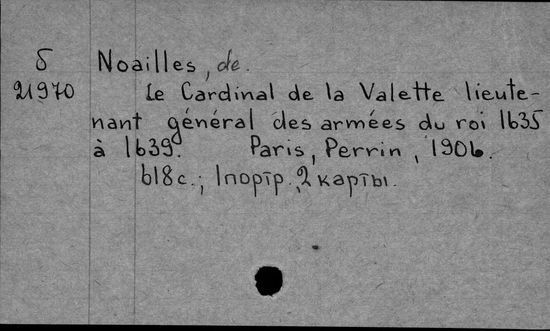 б Noailles, de.
21970 Le Cardinal de la Valette lieute-
nant général des armées du roi 1635
à 1639. Paris, Perrin, 1906.
618 с.; 1 портр., 2 карты.